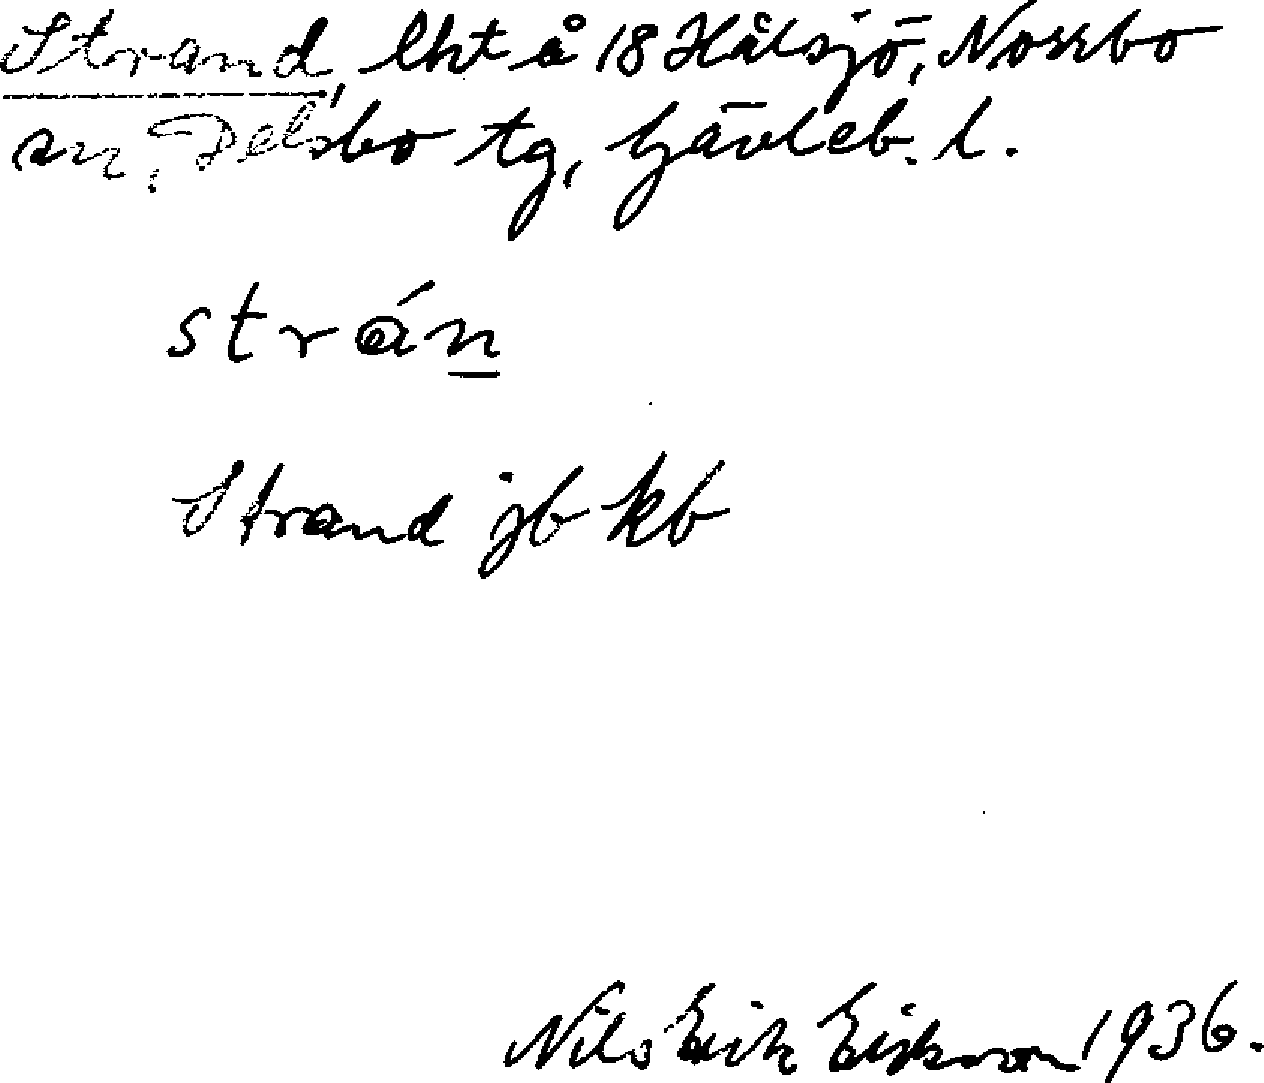 Strand, lht å 18 Hålsjö, Norrbo
sn, Delsbo tg, Gävleb. l.
strán
Strand jb kb
Nils Erik Eriksson 1936.